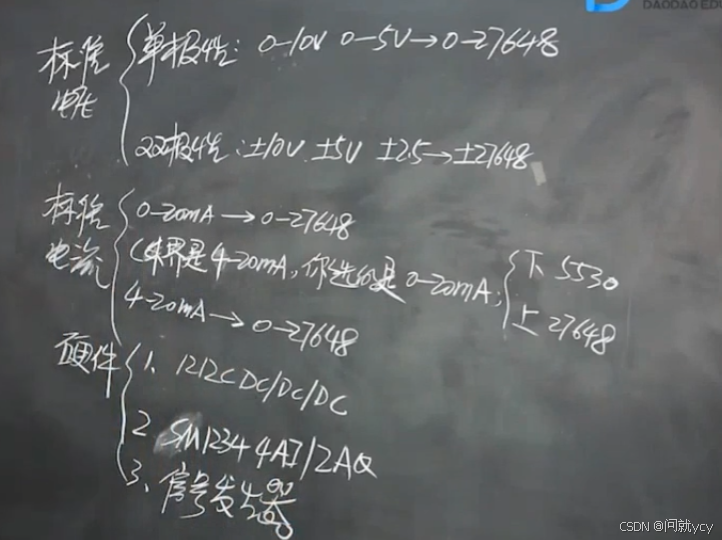 DAODAO EDU
标准电压
单极性: 0-10V 0-5V→0-27648
双极性: ±10V ±5V ±2.5→±27648
标准电流
0-20mA→0-27648
(外界是4-20mA,你选的是0-20mA;
下 5530
上 27648
4-20mA→0-27648
硬件
1、1212C DC/DC/DC
2 SM1234 4AI/2AQ
3、信号发生器
CSDN @问就ycy